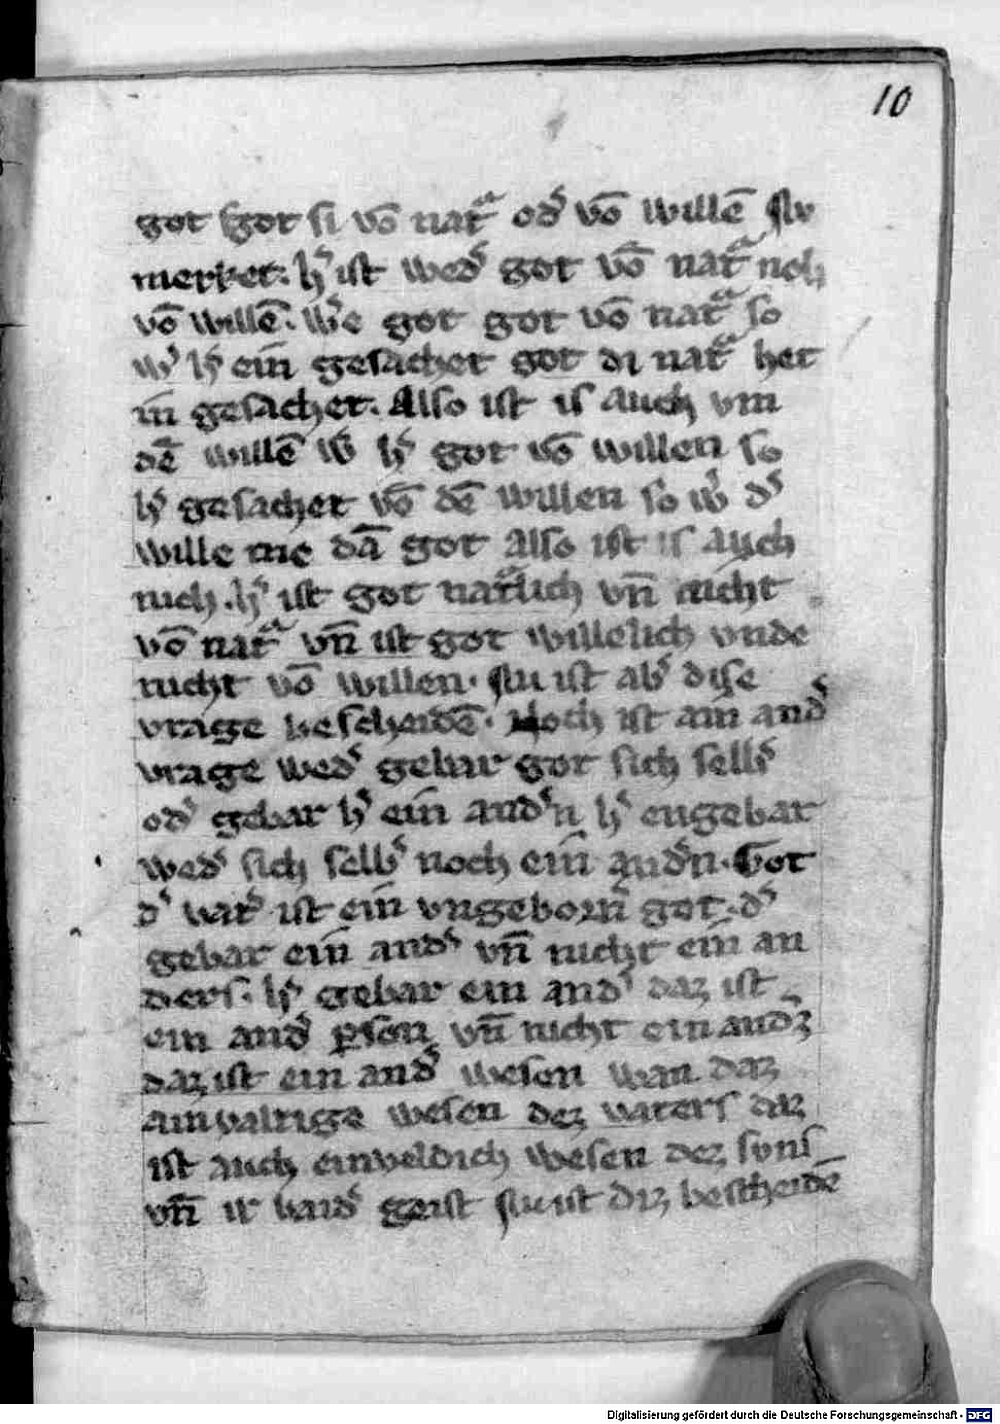 10
got got si vō natᵃ odˀ vō willē Nv
merket. hˀ ist wedˀ got vō natᵃ noh
vō willē. wˀe got got vō natᵃ so
wˀ hˀ ein gesachet got di natᵃ het
in gesachet. Also ist is auch vm
dē willē wˀ hˀ got vō willen so
hˀ gesachet vō dē willen so wˀ dˀ
wille me dā got Also ist is auch
nich. hˀ ist got natᵃlich vn̄ nicht
vō natᵃ vn̄ ist got willelich vnde
nicht vō willen. Nu ist abˀ dise
vrage bescheidē. Noch ist ain andˀ
vrage wedˀ gebar got sich selbˀ
odˀ gebar hˀ ein andˀn hˀ engebar
wedˀ sich selbˀ noch ein andˀn. Got
dˀ vatˀ ist ein vngeborn̄ got. dˀ
gebar ein andˀ vn̄ nicht ein an
ders. hˀ gebar ein andˀ daz ist
ein andˀ ꝑson vn̄ nicht ein andˀz
daz ist ein andˀ wesen wan daz
ainvaltige wesen dez vaters daz
ist auch einveldich wesen dez svns
vn̄ ir baidˀ geist Nu ist diz bescheidē
Digitalisierung gefördert durch die Deutsche Forschungsgemeinschaft - DFG